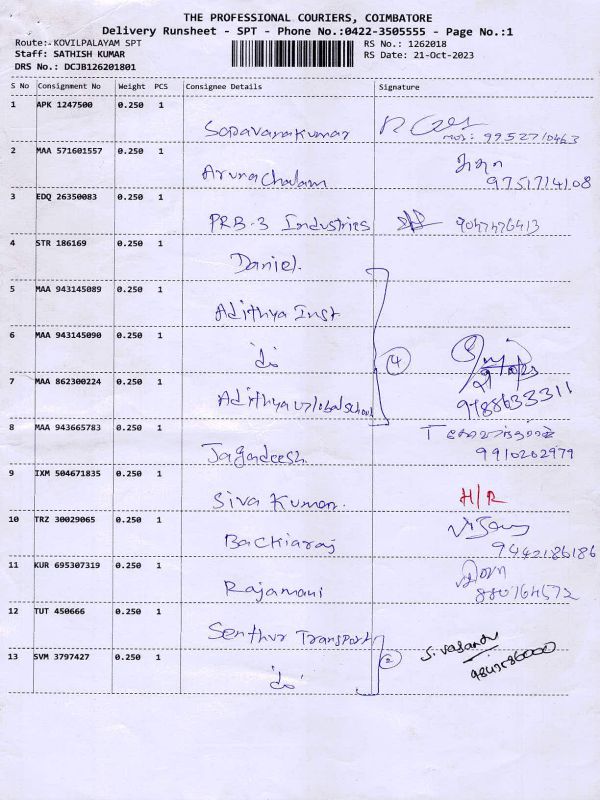 THE PROFESSIONAL COURIERS, COIMBATORE
Delivery Runsheet - SPT - Phone No.:0422-3505555 - Page No.:1
Route:- KOVILPALAYAM SPT
RS No.: 1262018
Staff: SATHISH KUMAR
RS Date: 21-Oct-2023
DRS No.: DCJB126201801
S No Consignment No Weight PCS Consignee Details Signature
1 APK 1247500 0.250 1
Saravanakumar
MOB: 9952710463
2 MAA 571601557 0.250 1
Arunachalam 9751714108
3 EDQ 26350083 0.250 1
PRB-3 Industries 9047476413
4 STR 186169 0.250 1
Daniel.
5 MAA 943145089 0.250 1
Adithya Inst
6 MAA 943145090 0.250 1
do 4
7 MAA 862300224 0.250 1
Adithya Global school 9788633311
8 MAA 943665783 0.250 1
Jagadeesh 9910202979
9 IXM 504671835 0.250 1
Siva Kumar. H/R
10 TRZ 30029065 0.250 1
Backiaraj 9442186186
11 KUR 695307319 0.250 1
Rajamani
12 TUT 450666 0.250 1
Senthur Transport
13 SVM 3797427 0.250 1
do 2